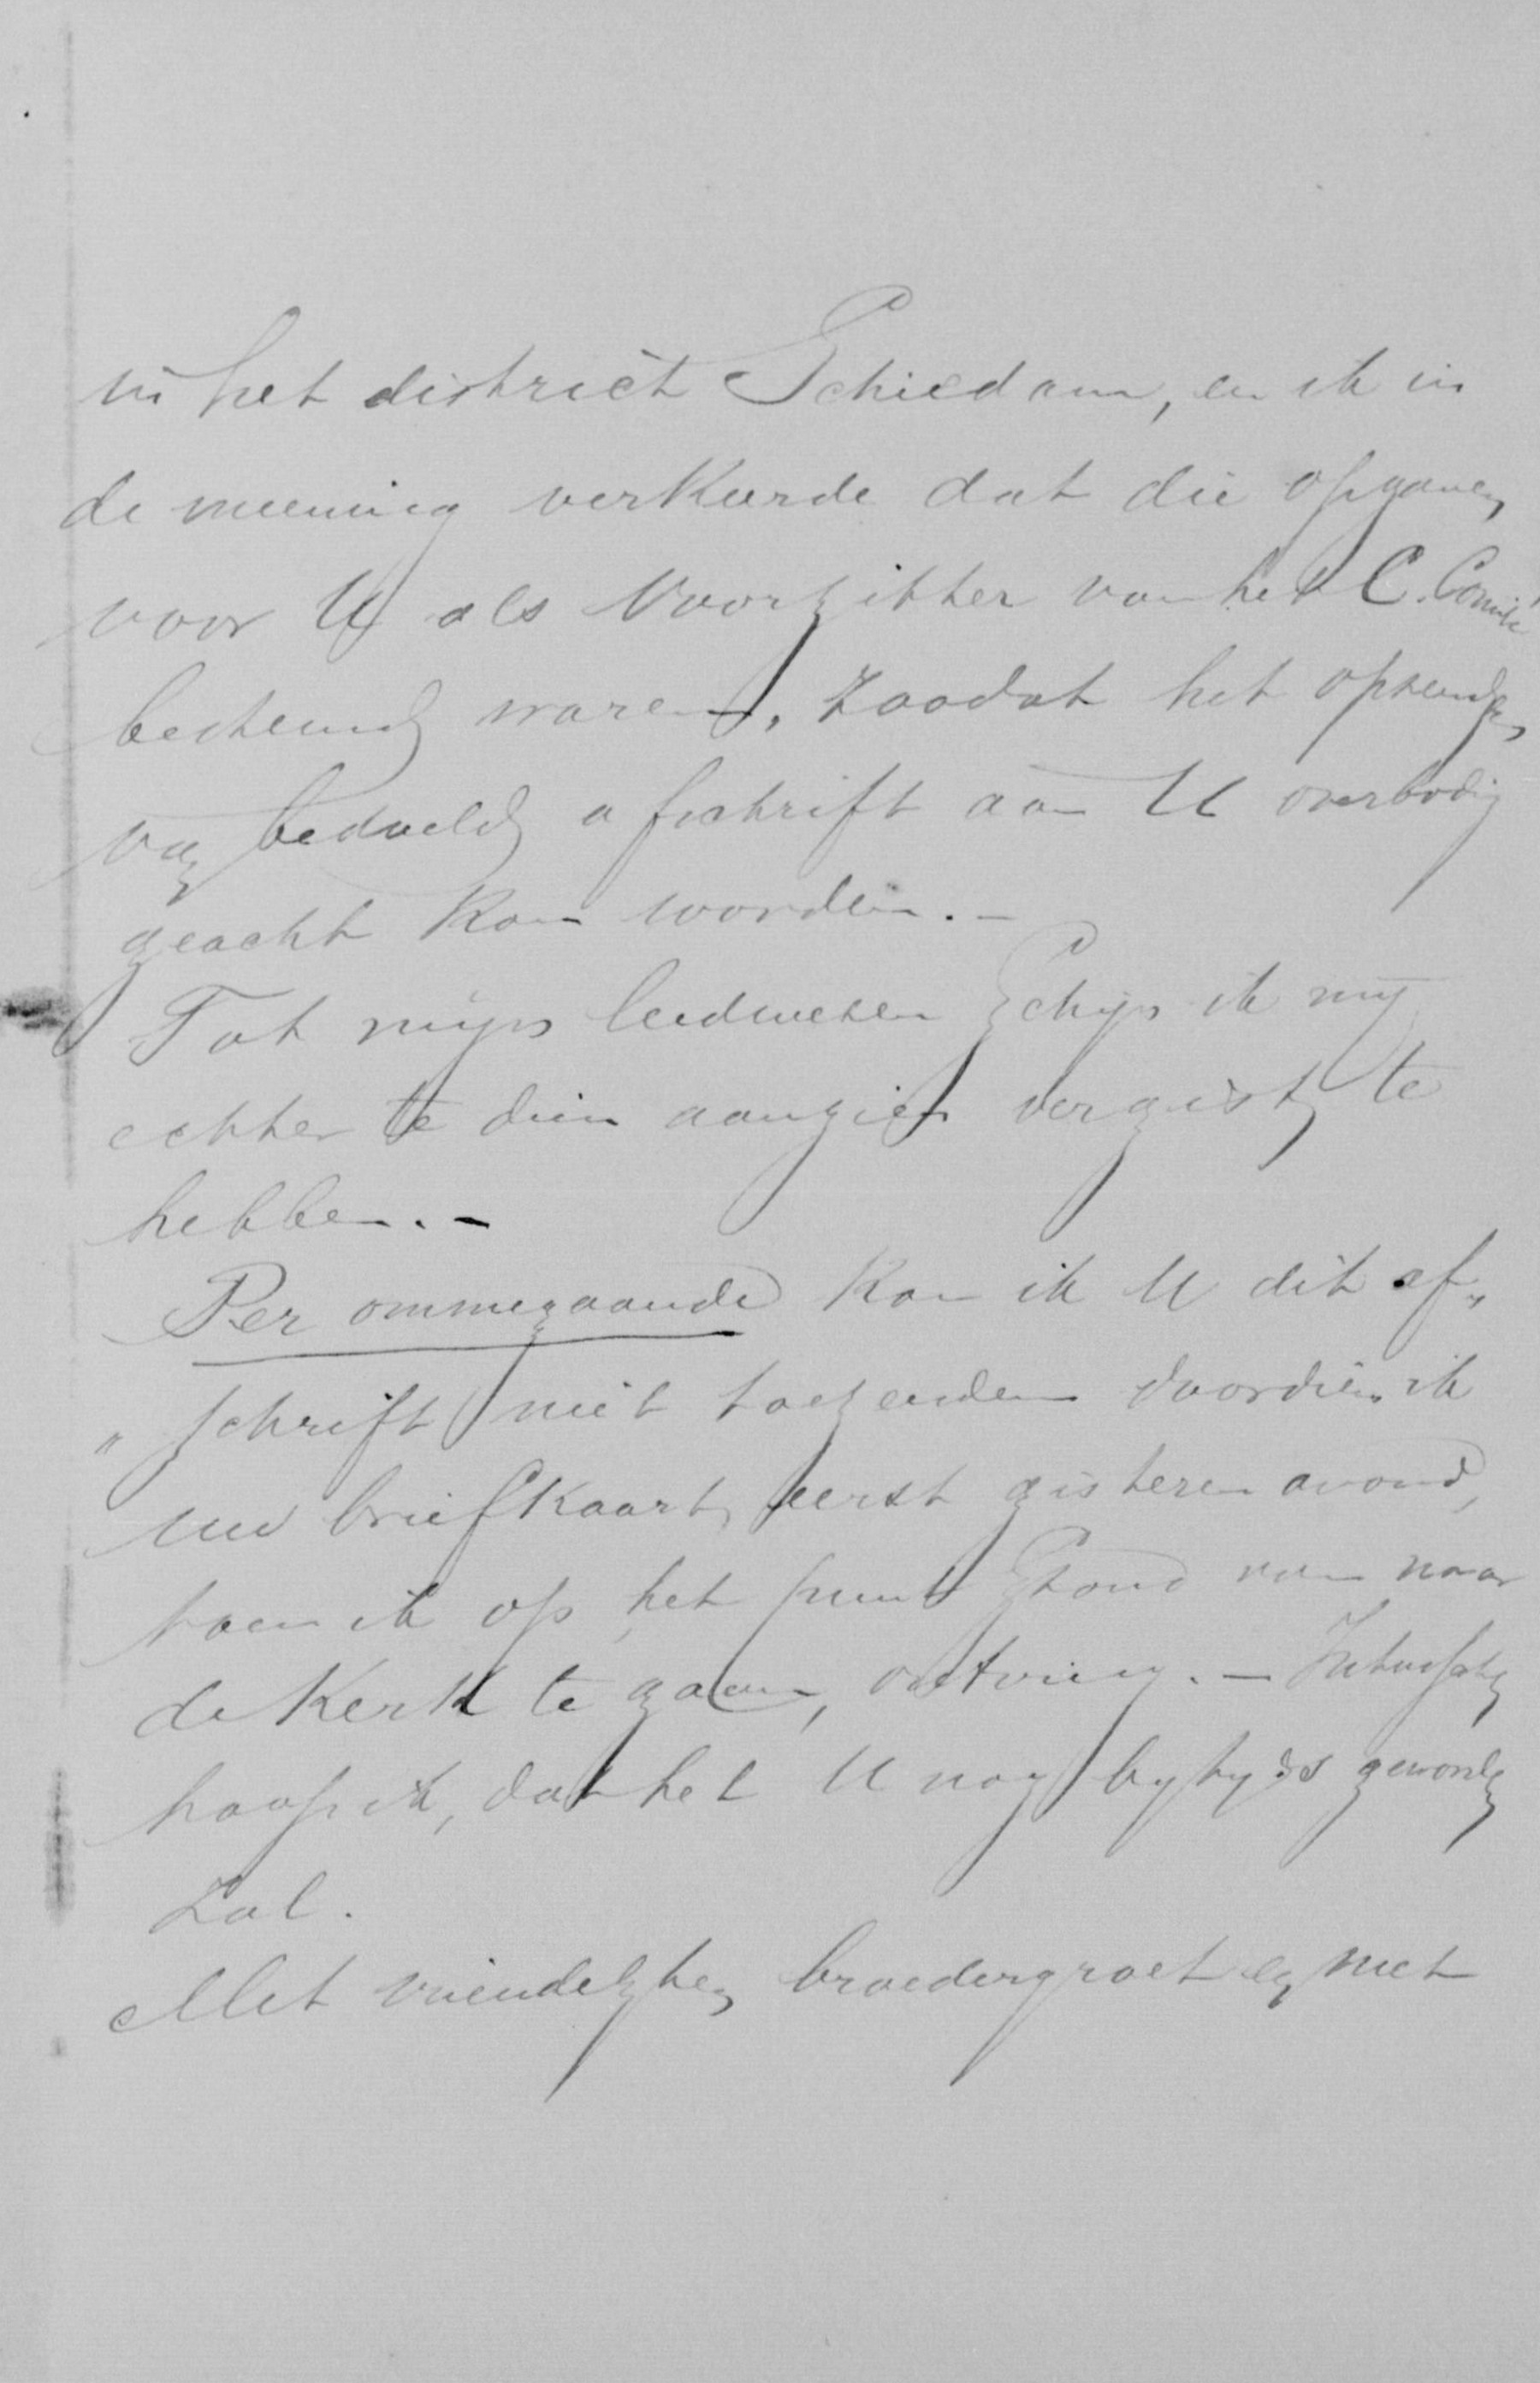 in het district Schiedam, en ik in
de meening verkeerde dat die opgaven
voor U als Voorzitter van het C. Comité
bestemd waren, zoodat het opzenden
van bedoeld afschrift aan U overbodig
geacht kon worden. -
Tot mijn leedwezen schijn ik mij
echter te dien aanzien vergist te
hebben. -
Per ommegaande kan ik U dit af„
„schrift niet toezenden doordien ik
uw briefkaart eerst gisteren avond,
toen ik op het punt stond van naar
de Kerk te gaan, ontving. - Intusschen
hoop ik, dat het U nog bytyds geworden
zal.
Met vriendelyken broedergroet en met